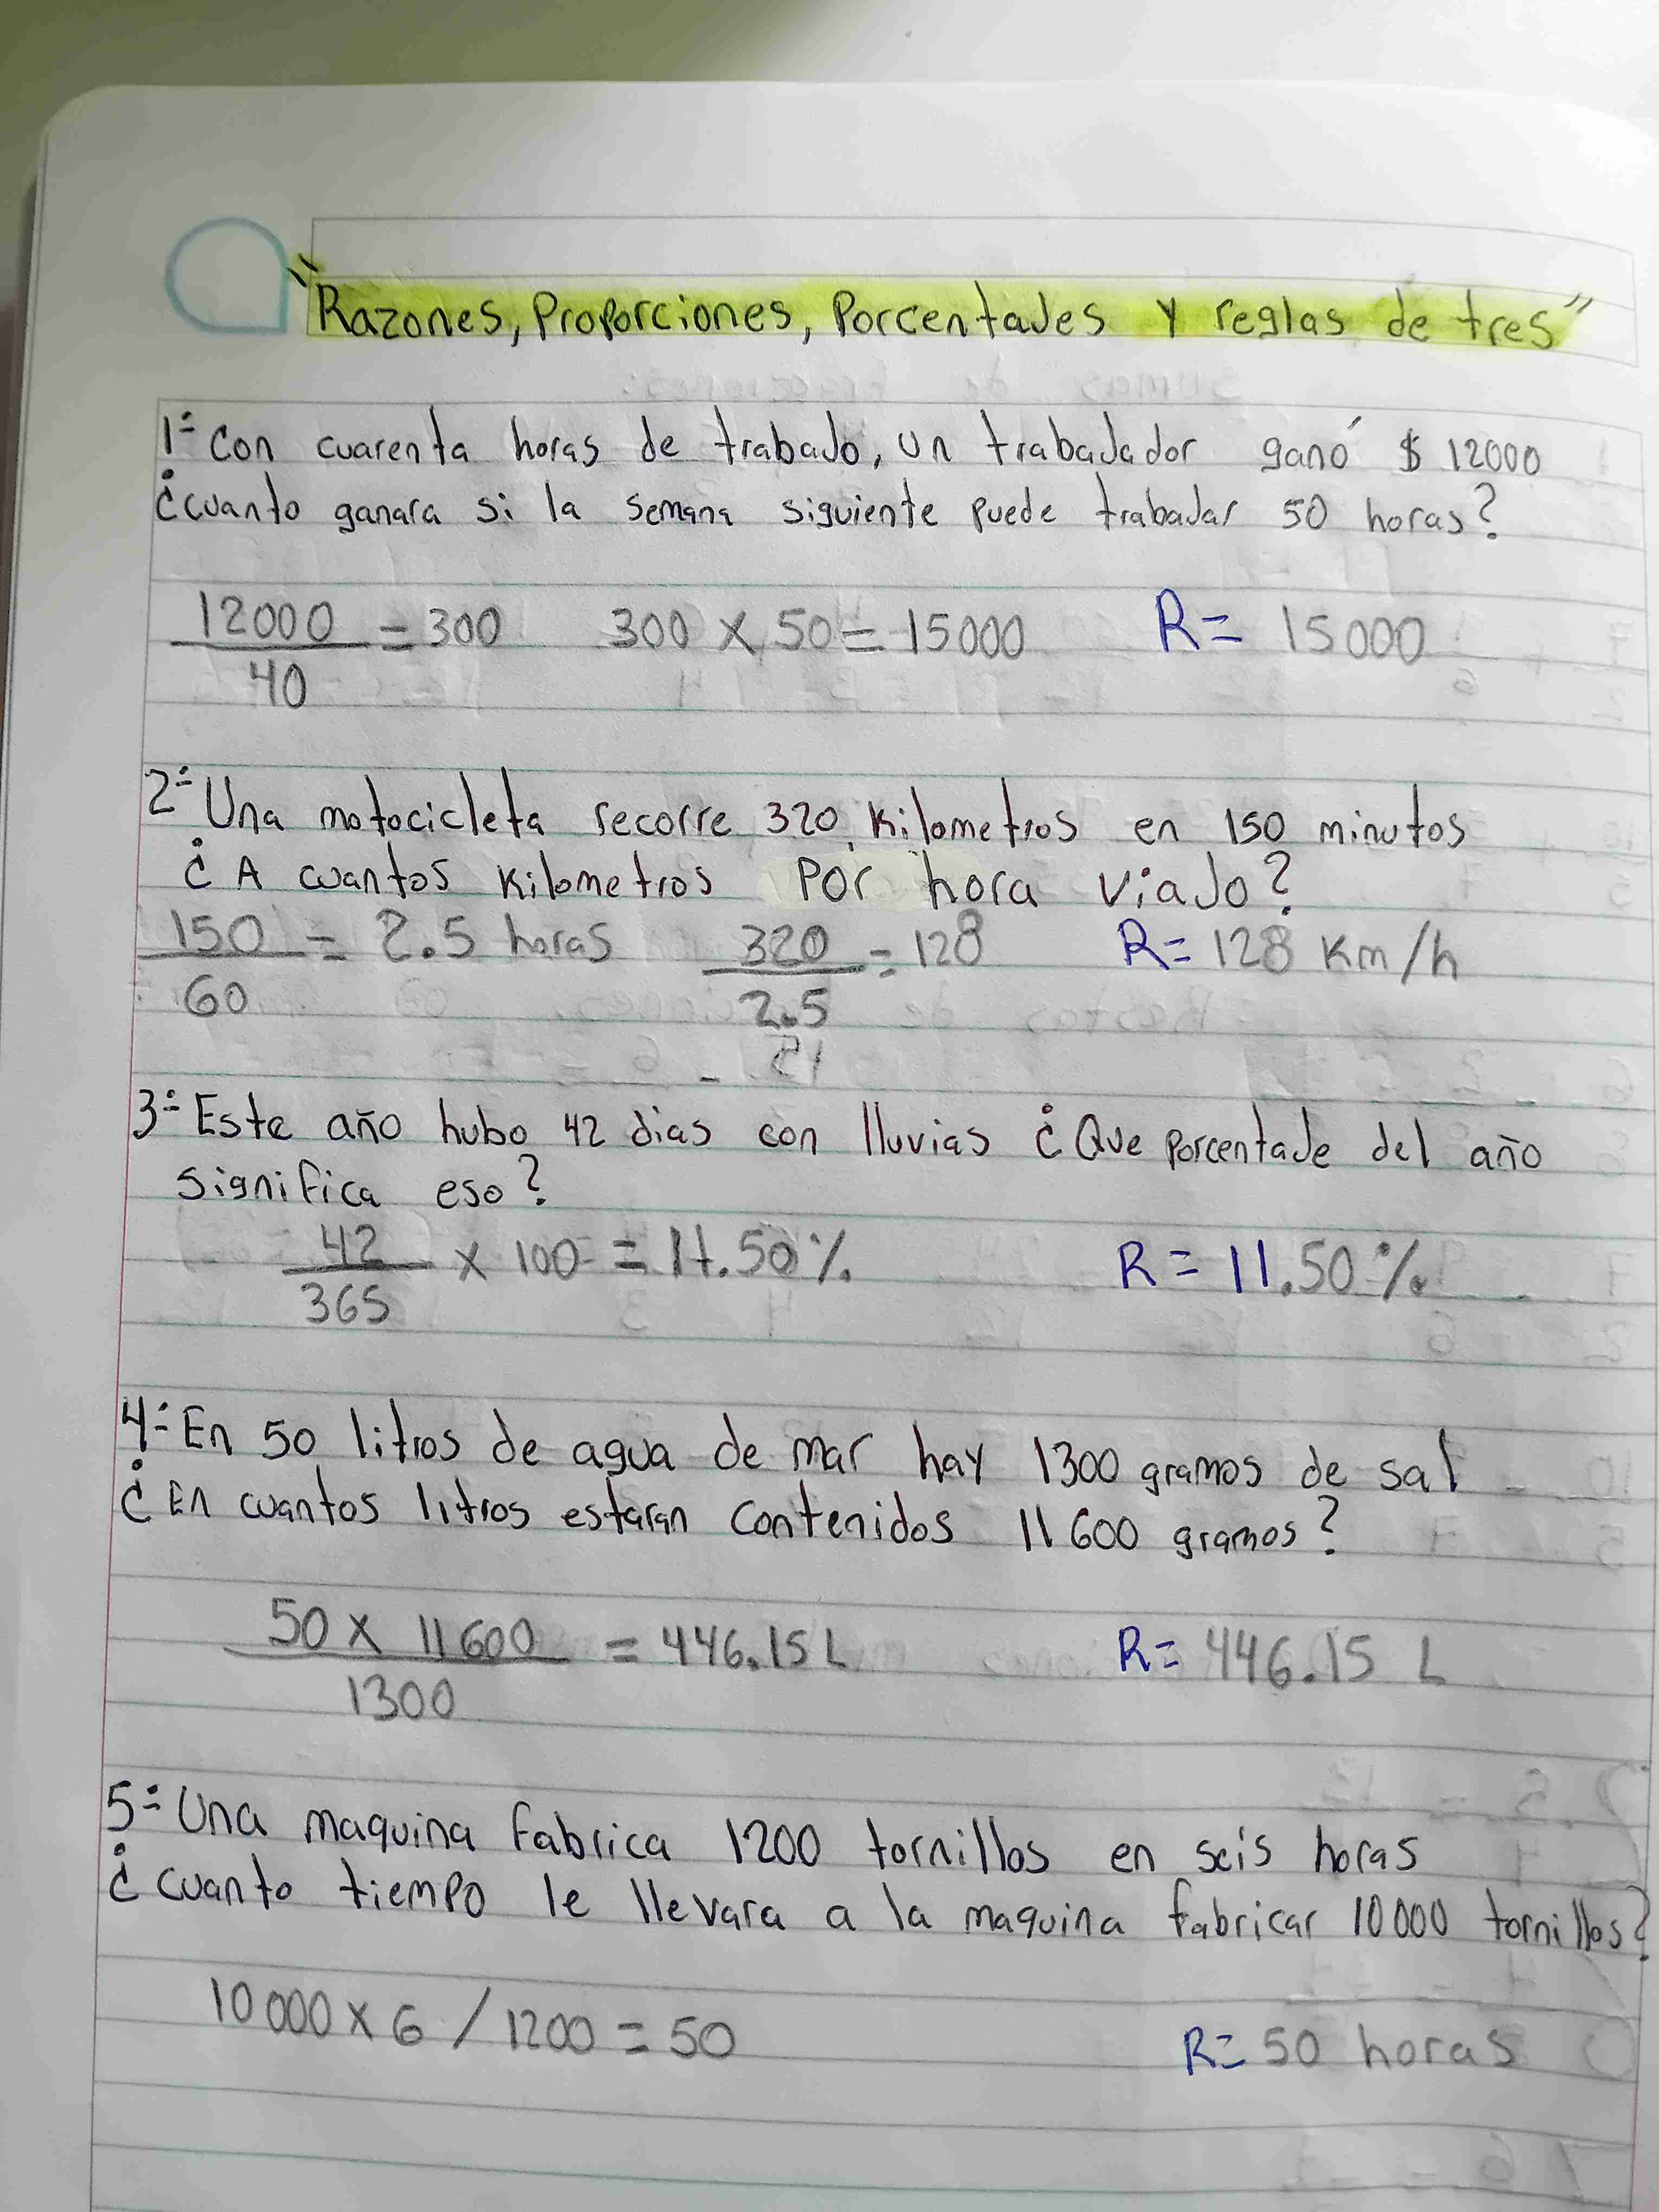 "Razones, Proporciones, Porcentajes y reglas de tres"
1=Con cuarenta horas de trabajo, un trabajador ganó $ 12000
¿cuanto ganara si la semana siguiente puede trabajar 50 horas?
12000/40 = 300 300 x 50 = 15000 R= 15000
2= Una motocicleta recorre 320 kilometros en 150 minutos
¿A cuantos kilometros por hora viajo?
150/60 = 2.5 horas 320/2.5 = 128 R= 128 Km/h
3= Este año hubo 42 dias con lluvias ¿Que porcentaje del año
significa eso?
42/365 x 100 = 11.50% R = 11.50%
4= En 50 litros de agua de mar hay 1300 gramos de sal
¿En cuantos litros estaran contenidos 11600 gramos?
50 x 11600/1300 = 446.15 L R= 446.15 L
5= Una maquina fabrica 1200 tornillos en seis horas
¿cuanto tiempo le llevara a la maquina fabricar 10000 tornillos?
10000 x 6 / 1200 = 50 R= 50 horas